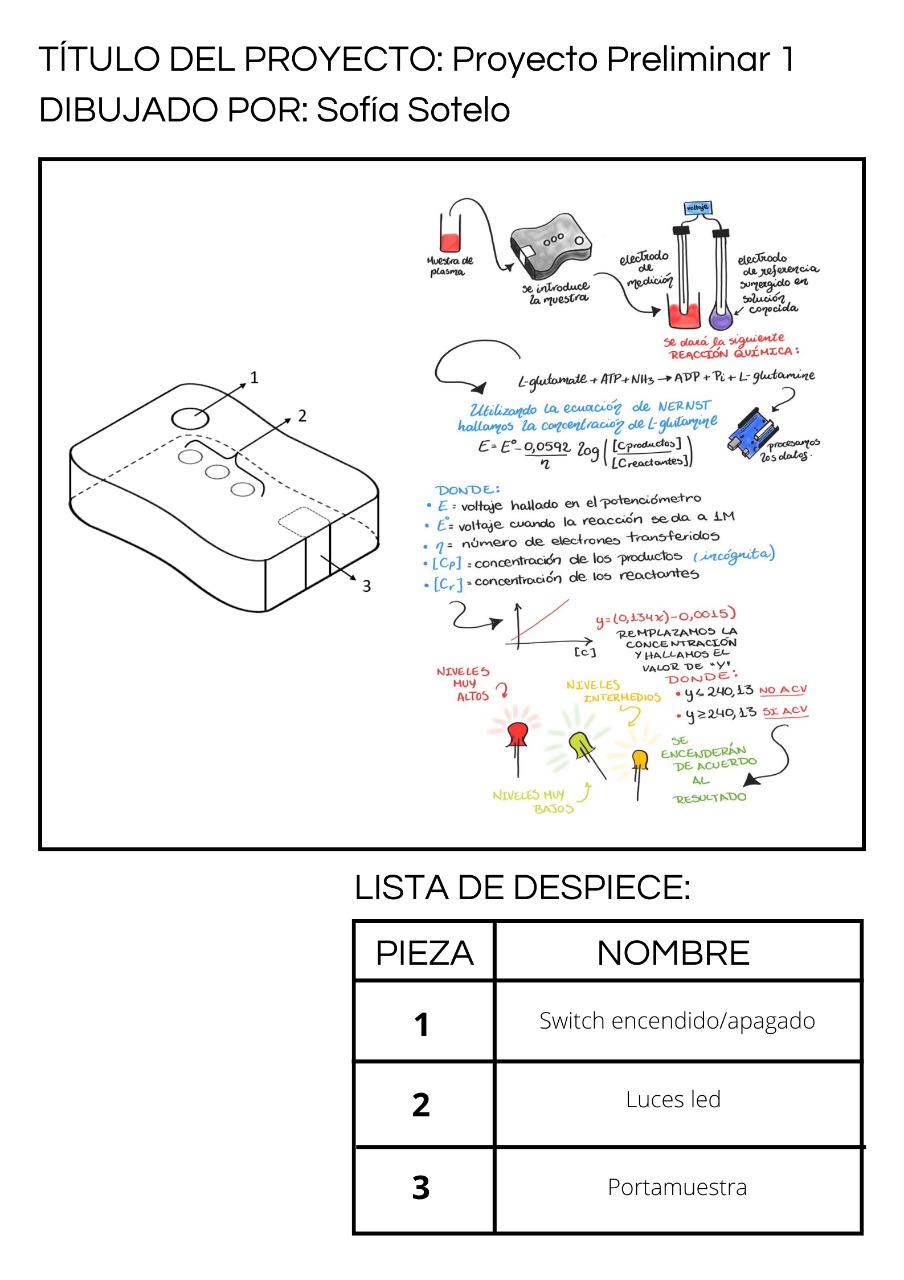 TÍTULO DEL PROYECTO: Proyecto Preliminar 1
DIBUJADO POR: Sofía Sotelo
1
2
3
Muestra de
plasma
se introduce
la muestra
voltaje
electrodo
de
medición
electrodo
de referencia
sumergido en
solución
conocida
Se dará la siguiente
REACCIÓN QUÍMICA:
L-glutamate + ATP + NH3 → ADP + Pi + L-glutamine
Utilizando la ecuación de NERNST
hallamos la concentración de L-glutamine
E = E° - 0,0592/η log([Cproductos]/[Creactantes])
procesamos
los datos.
DONDE:
• E = voltaje hallado en el potenciómetro
• E° = voltaje cuando la reacción se da a 1M
• η = número de electrones transferidos
• [Cp] = concentración de los productos (incógnita)
• [Cr] = concentración de los reactantes
[C]
y=(0,134x)-0,0015)
REMPLAZAMOS LA
CONCENTRACIÓN
Y HALLAMOS EL
VALOR DE "Y"
DONDE:
• y < 240,13 NO ACV
• y ≥ 240,13 SI ACV
NIVELES
MUY
ALTOS
NIVELES
INTERMEDIOS
NIVELES MUY
BAJOS
SE
ENCENDERÁN
DE ACUERDO
AL
RESULTADO
LISTA DE DESPIECE:
PIEZA NOMBRE
1 Switch encendido/apagado
2 Luces led
3 Portamuestra